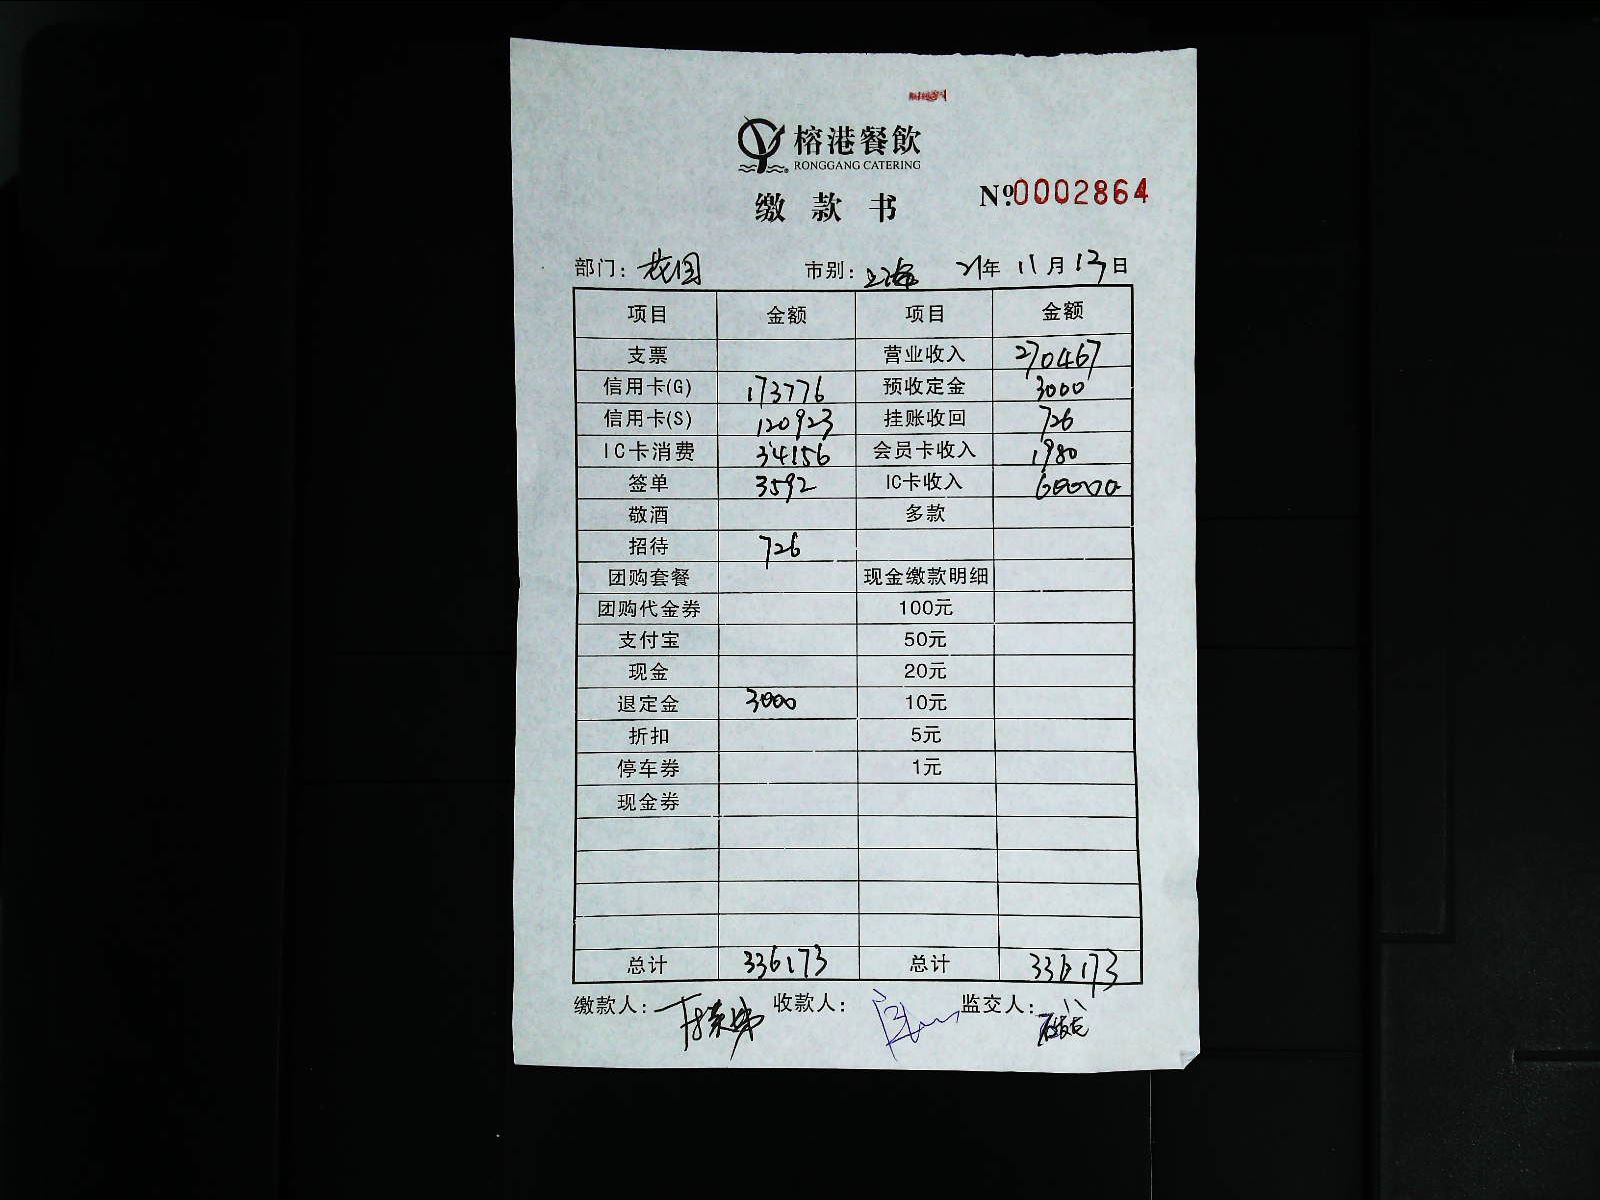 榕港餐飲
RONGGANG CATERING
缴款书 Nº.0002864
部门: 花园 市别: 上海 21年 11月 13日
项目 金额 项目 金额
支票 营业收入 270467
信用卡(G) 173776 预收定金 3000
信用卡(S) 120923 挂账收回 726
IC卡消费 34156 会员卡收入 1980
签单 3592 IC卡收入 60000
敬酒 多款
招待 726
团购套餐 现金缴款明细
团购代金券 100元
支付宝 50元
现金 20元
退定金 3000 10元
折扣 5元
停车券 1元
现金券
总计 336173 总计 336173
缴款人: 收款人: 监交人: